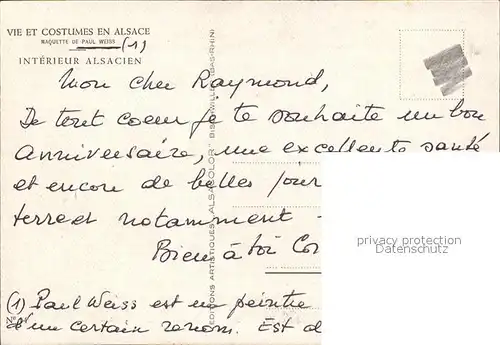 VIE ET COSTUMES EN ALSACE
MAQUETTE DE PAUL WEISS (1)
INTÉRIEUR ALSACIEN
Mon cher Raymond,
De tout coeur je te souhaite un bon
anniversaire, une excellente santé
et encore de belles jour
terre et notamment
Bien à toi
(1) Paul Weiss est un peintre
d'un certain renom. Est
EDITIONS ARTISTIQUES ALSACOLOR BISCHWILLER (BAS-RHIN)
privacy protection
Datenschutz